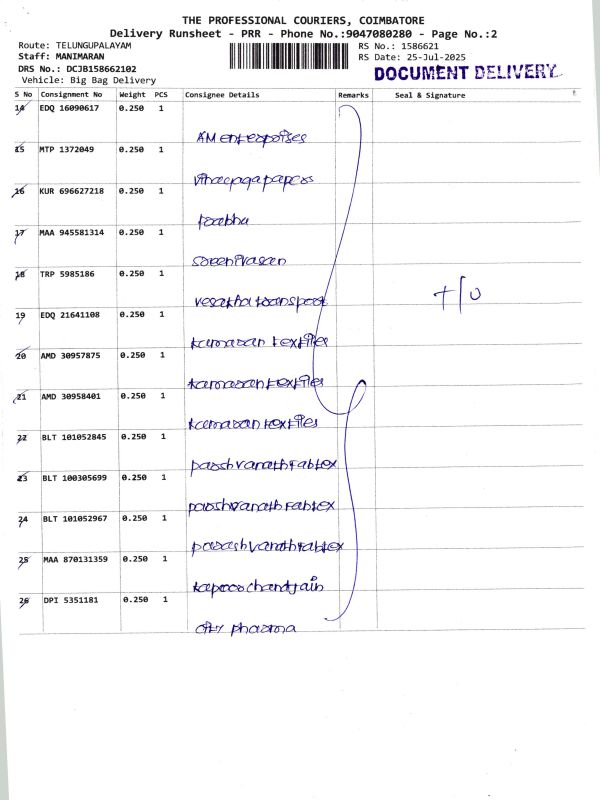 THE PROFESSIONAL COURIERS, COIMBATORE
Delivery Runsheet - PRR - Phone No.:9047080280 - Page No.:2
Route: TELUNGUPALAYAM
RS No.: 1586621
Staff: MANIMARAN
RS Date: 25-Jul-2025
DRS No.: DCJB158662102
DOCUMENT DELIVERY
Vehicle: Big Bag Delivery
S No Consignment No Weight PCS Consignee Details Remarks Seal & Signature
14 EDQ 16090617 0.250 1
AM enterprises
15 MTP 1372049 0.250 1
papers
16 KUR 696627218 0.250 1
prabha
17 MAA 945581314 0.250 1
sreenivasan
18 TRP 5985186 0.250 1
transport
T/O
19 EDQ 21641108 0.250 1
kamaran textiles
20 AMD 30957875 0.250 1
kamaran textiles
21 AMD 30958401 0.250 1
kamaran textiles
22 BLT 101052845 0.250 1
parshvanath fabtex
23 BLT 100305699 0.250 1
parshvanath fabtex
24 BLT 101052967 0.250 1
parashvanath fabtex
25 MAA 870131359 0.250 1
kapoorchand jain
26 DPI 5351181 0.250 1
city pharma